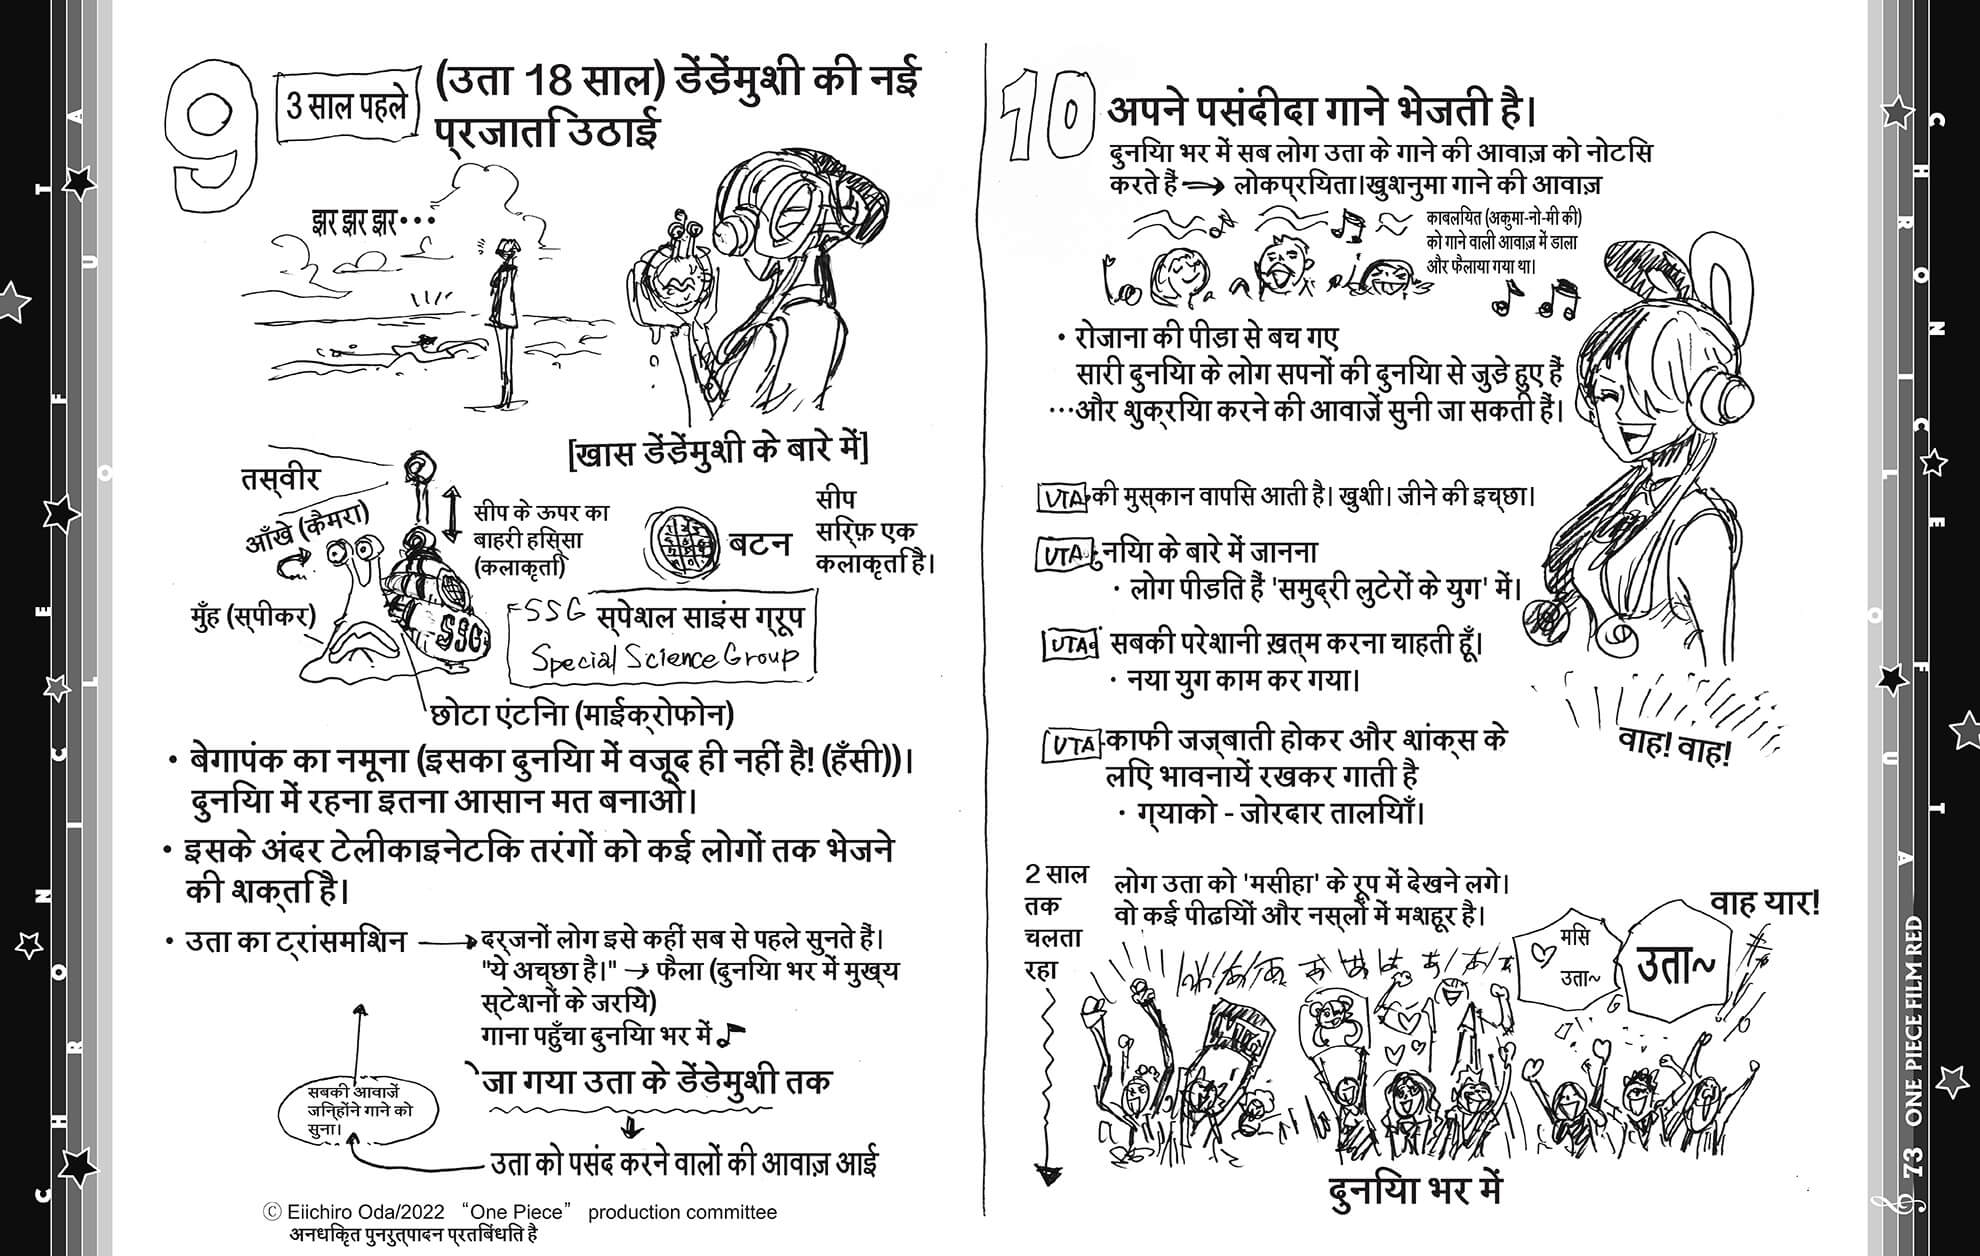 9
3 साल पहले
(उता 18 साल) डेंडेंमुशी की नई
प्रजाति उठाई
झर झर झर•••
[खास डेंडेंमुशी के बारे में]
तस्वीर
आँखे (कैमरा)
मुँह (स्पीकर)
सीप के ऊपर का
बाहरी हिस्सा
(कलाकृति)
बटन
सीप
सिर्फ़ एक
कलाकृति है।
SSG
SSG स्पेशल साइंस ग्रूप
Special Science Group
छोटा एंटिना (माईक्रोफोन)
• बेगापंक का नमूना (इसका दुनिया में वजूद ही नहीं है! (हँसी))।
दुनिया में रहना इतना आसान मत बनाओ।
• इसके अंदर टेलीकाइनेटिक तरंगों को कई लोगों तक भेजने
की शक्ति है।
• उता का ट्रांसमिशन → दर्जनों लोग इसे कहीं सब से पहले सुनते है।
"ये अच्छा है।" → फैला (दुनिया भर में मुख्य
स्टेशनों के जरिये)
गाना पहुँचा दुनिया भर में ♪
जा गया उता के डेंडेमुशी तक
सबकी आवाजें
जिन्होंने गाने को
सुना।
उता को पसंद करने वालों की आवाज़ आई
Ⓒ Eiichiro Oda/2022 “One Piece” production committee
अनधिकृत पुनरुत्पादन प्रतिबंधित है
10
अपने पसंदीदा गाने भेजती है।
दुनिया भर में सब लोग उता के गाने की आवाज़ को नोटिस
करते हैं → लोकप्रियता।खुशनुमा गाने की आवाज़
काबिलियत (अकुमा-नो-मी की)
को गाने वाली आवाज़ में डाला
और फैलाया गया था।
• रोजाना की पीडा से बच गए
सारी दुनिया के लोग सपनों की दुनिया से जुड़े हुए हैं
•••और शुक्रिया करने की आवाजें सुनी जा सकती हैं।
UTA की मुस्कान वापिस आती है। खुशी। जीने की इच्छा।
UTA निया के बारे में जानना
• लोग पीडित हैं 'समुद्री लुटेरों के युग' में।
UTA सबकी परेशानी ख़त्म करना चाहती हूँ।
• नया युग काम कर गया।
UTA काफी जज्बाती होकर और शांक्स के
लिए भावनायें रखकर गाती है
• ग्याको - जोरदार तालियाँ।
वाह! वाह!
2 साल
तक
चलता
रहा
लोग उता को 'मसीहा' के रूप में देखने लगे।
वो कई पीढियों और नस्लों में मशहूर है।
मिस
उता~
उता~
वाह यार!
दुनिया भर में
CHRONICLE OF UTA
CHRONICLE OF UTA
73 ONE PIECE FILM RED